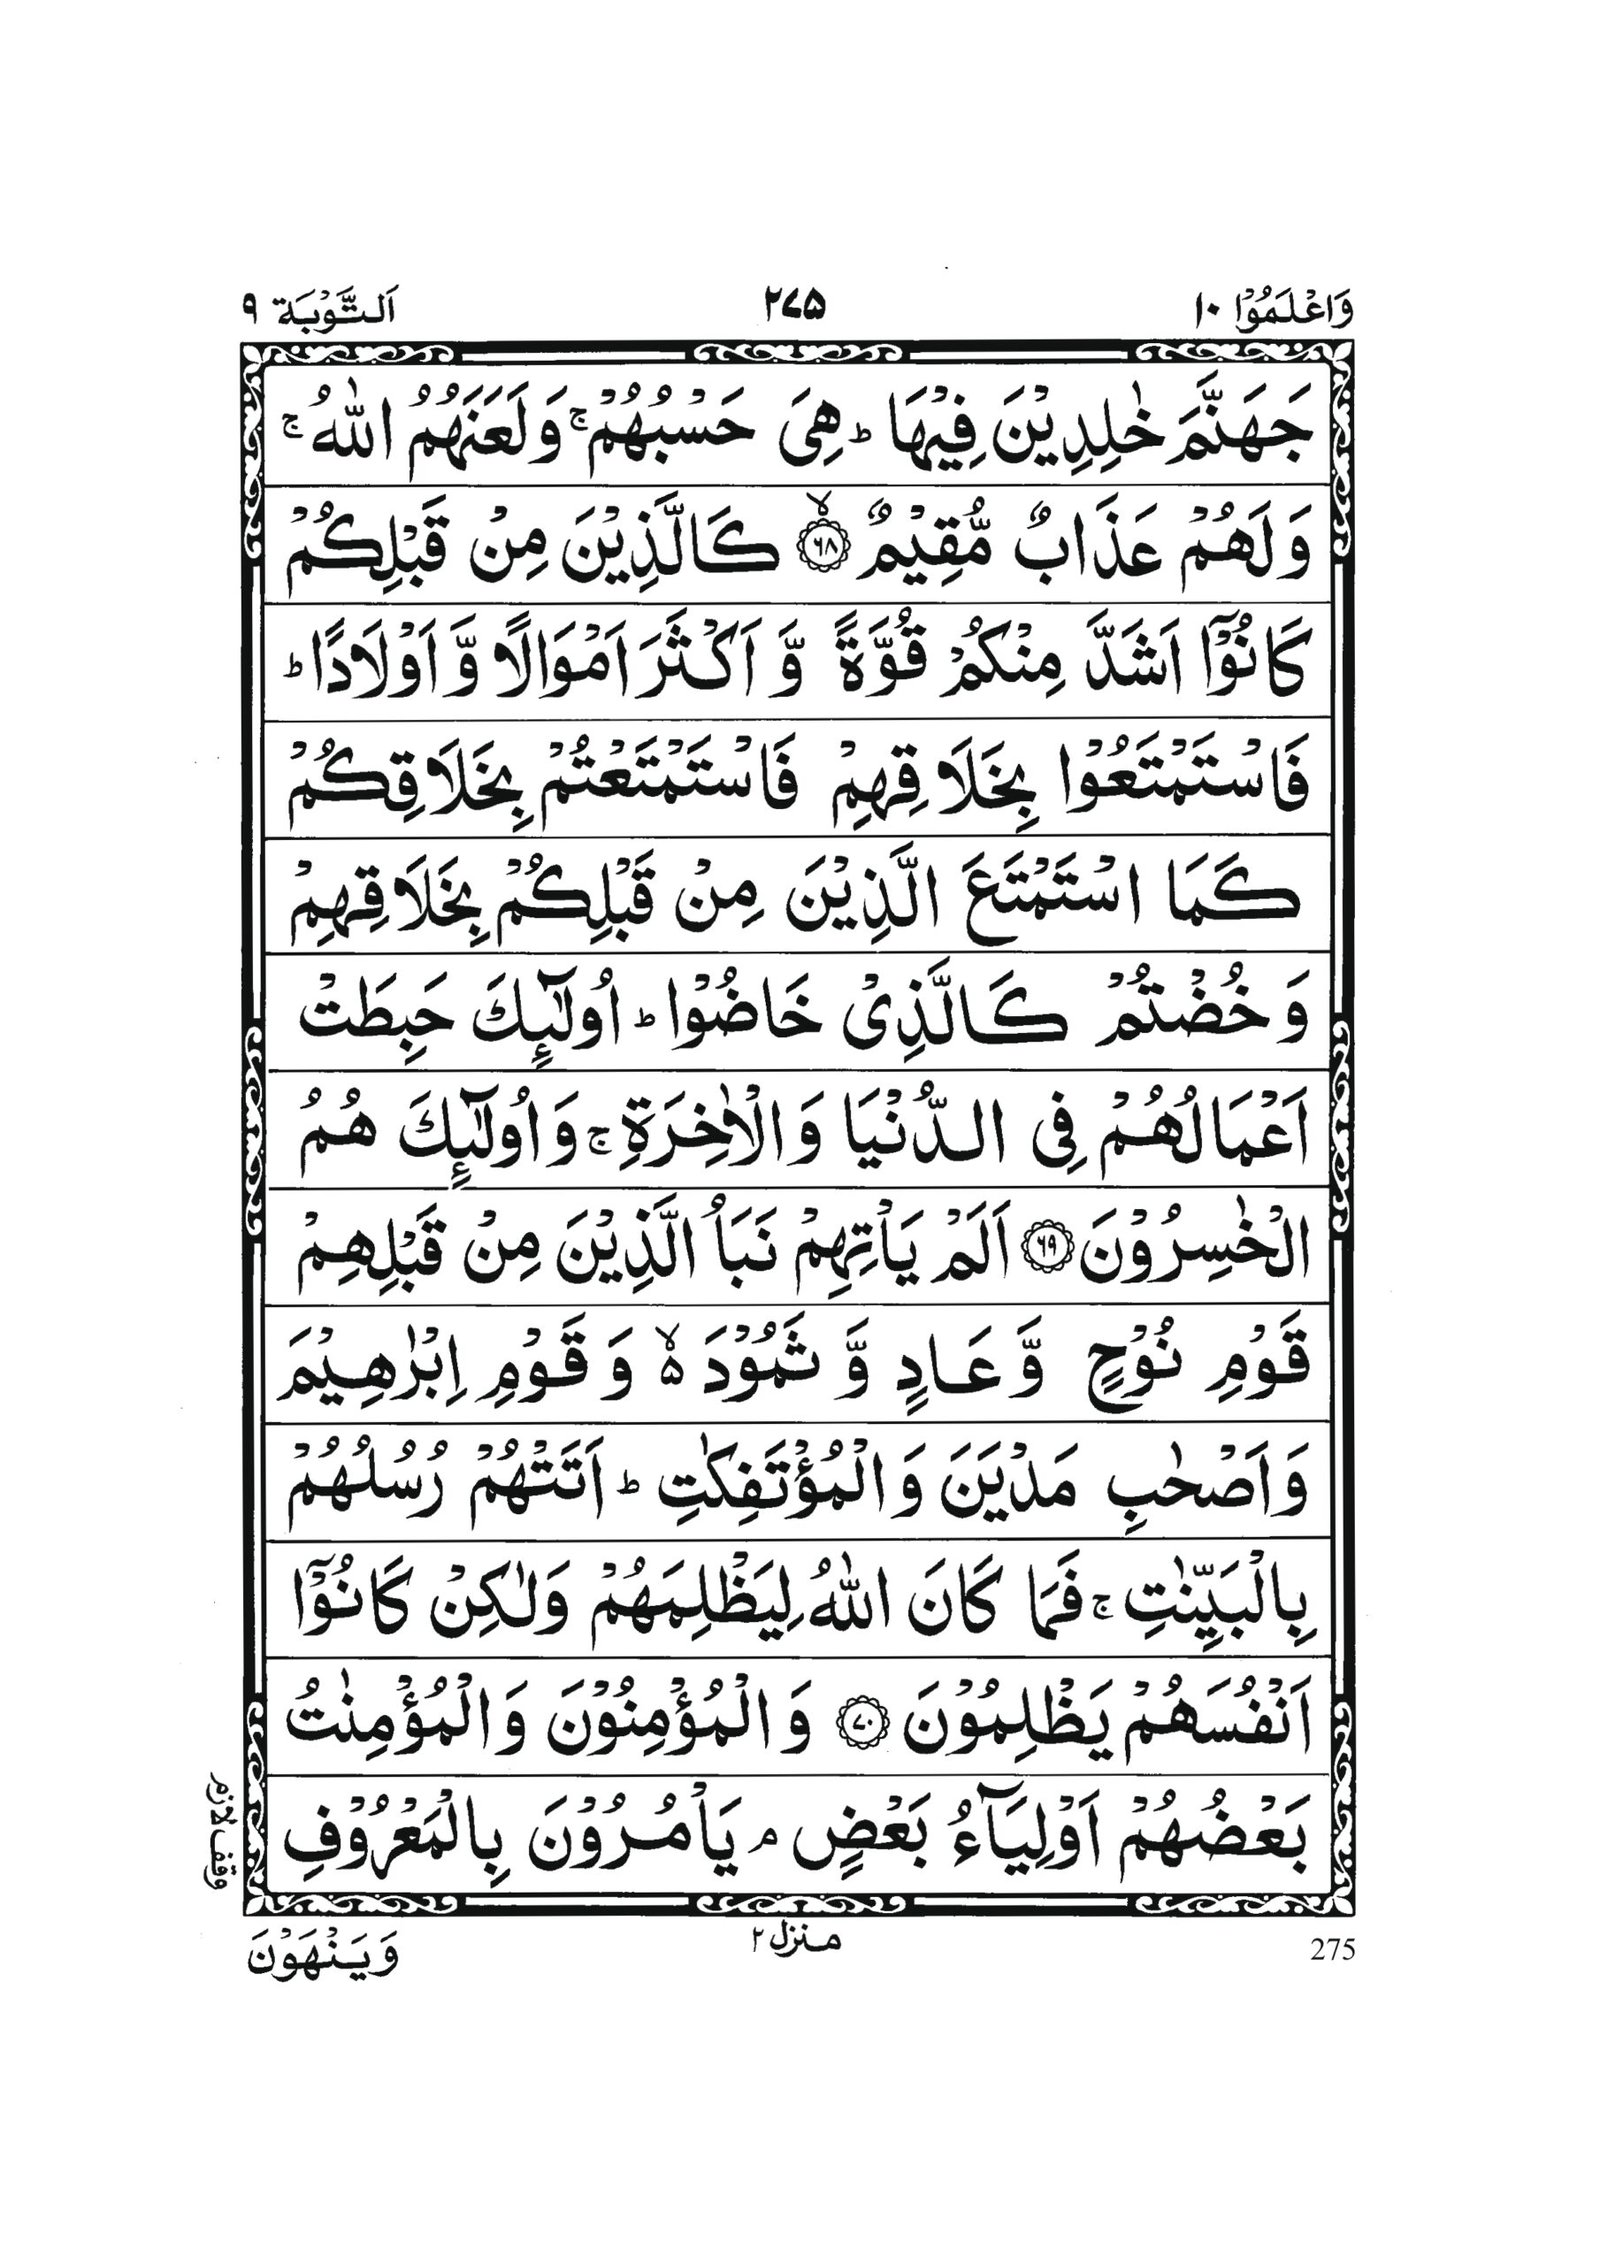 وَاعْلَمُوْۤا ١٠ ٢٧٥ اَلتَّوْبَة ٩
جَهَنَّمَ خٰلِدِيْنَ فِيْهَا ؕ هِىَ حَسْبُهُمْ ۚ وَلَعَنَهُمُ اللّٰهُ ۚ
وَلَهُمْ عَذَابٌ مُّقِيْمٌ ۙ‏﴿۶۸﴾ كَالَّذِيْنَ مِنْ قَبْلِكُمْ
كَانُوْۤا اَشَدَّ مِنْكُمْ قُوَّةً وَّ اَكْثَرَ اَمْوَالًا وَّ اَوْلَادًا ؕ
فَاسْتَمْتَعُوْا بِخَلَاقِهِمْ فَاسْتَمْتَعْتُمْ بِخَلَاقِكُمْ
كَمَا اسْتَمْتَعَ الَّذِيْنَ مِنْ قَبْلِكُمْ بِخَلَاقِهِمْ
وَخُضْتُمْ كَالَّذِىْ خَاضُوْا ؕ اُولٰٓئِكَ حَبِطَتْ
اَعْمَالُهُمْ فِى الدُّنْيَا وَالْاٰخِرَةِ ۚ وَاُولٰٓئِكَ هُمُ
الْخٰسِرُوْنَ ﴿۶۹﴾ اَلَمْ يَاْتِهِمْ نَبَاُ الَّذِيْنَ مِنْ قَبْلِهِمْ
قَوْمِ نُوْحٍ وَّعَادٍ وَّ ثَمُوْدَ ۵ۙ وَقَوْمِ اِبْرٰهِيْمَ
وَاَصْحٰبِ مَدْيَنَ وَالْمُؤْتَفِكٰتِ ؕ اَتَتْهُمْ رُسُلُهُمْ
بِالْبَيِّنٰتِ ۚ فَمَا كَانَ اللّٰهُ لِيَظْلِمَهُمْ وَلٰكِنْ كَانُوْۤا
اَنْفُسَهُمْ يَظْلِمُوْنَ ﴿۷۰﴾ وَالْمُؤْمِنُوْنَ وَالْمُؤْمِنٰتُ
بَعْضُهُمْ اَوْلِيَآءُ بَعْضٍ ۘ يَاْمُرُوْنَ بِالْمَعْرُوْفِ
وقف لازم
275 منزل ٢ وَيَنْهَوْنَ